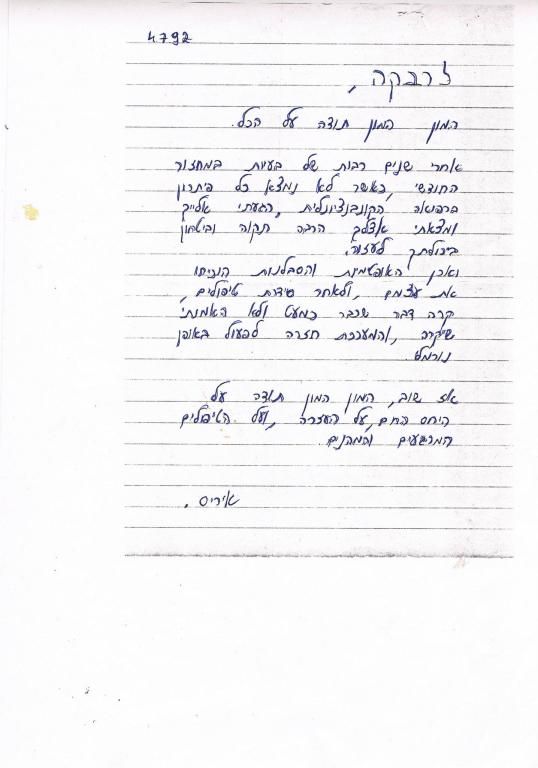 4.7.92
לרבקה,
המון המון תודה על הכל.
אחרי שנים רבות של בעיות במחזור
החודשי, כאשר לא נמצא כל פיתרון
ברפואה הקונבנציונלית, הגעתי אלייך
ומצאתי אצלך הרבה תקוה וביטחון
ביכולתך לעזור.
ואכן האופטמיות והסבלנות הוכיחו
את עצמם, ולאחר סידרת טיפולים,
קרה דבר שכבר כמעט ולא האמנתי
שיקרה, והמערכת חזרה לפעול באופן
נורמלי.
אז שוב, המון המון תודה על
היחס החם, על העזרה, ועל הטיפולים
המרגיעים והמהנים.
איריס.